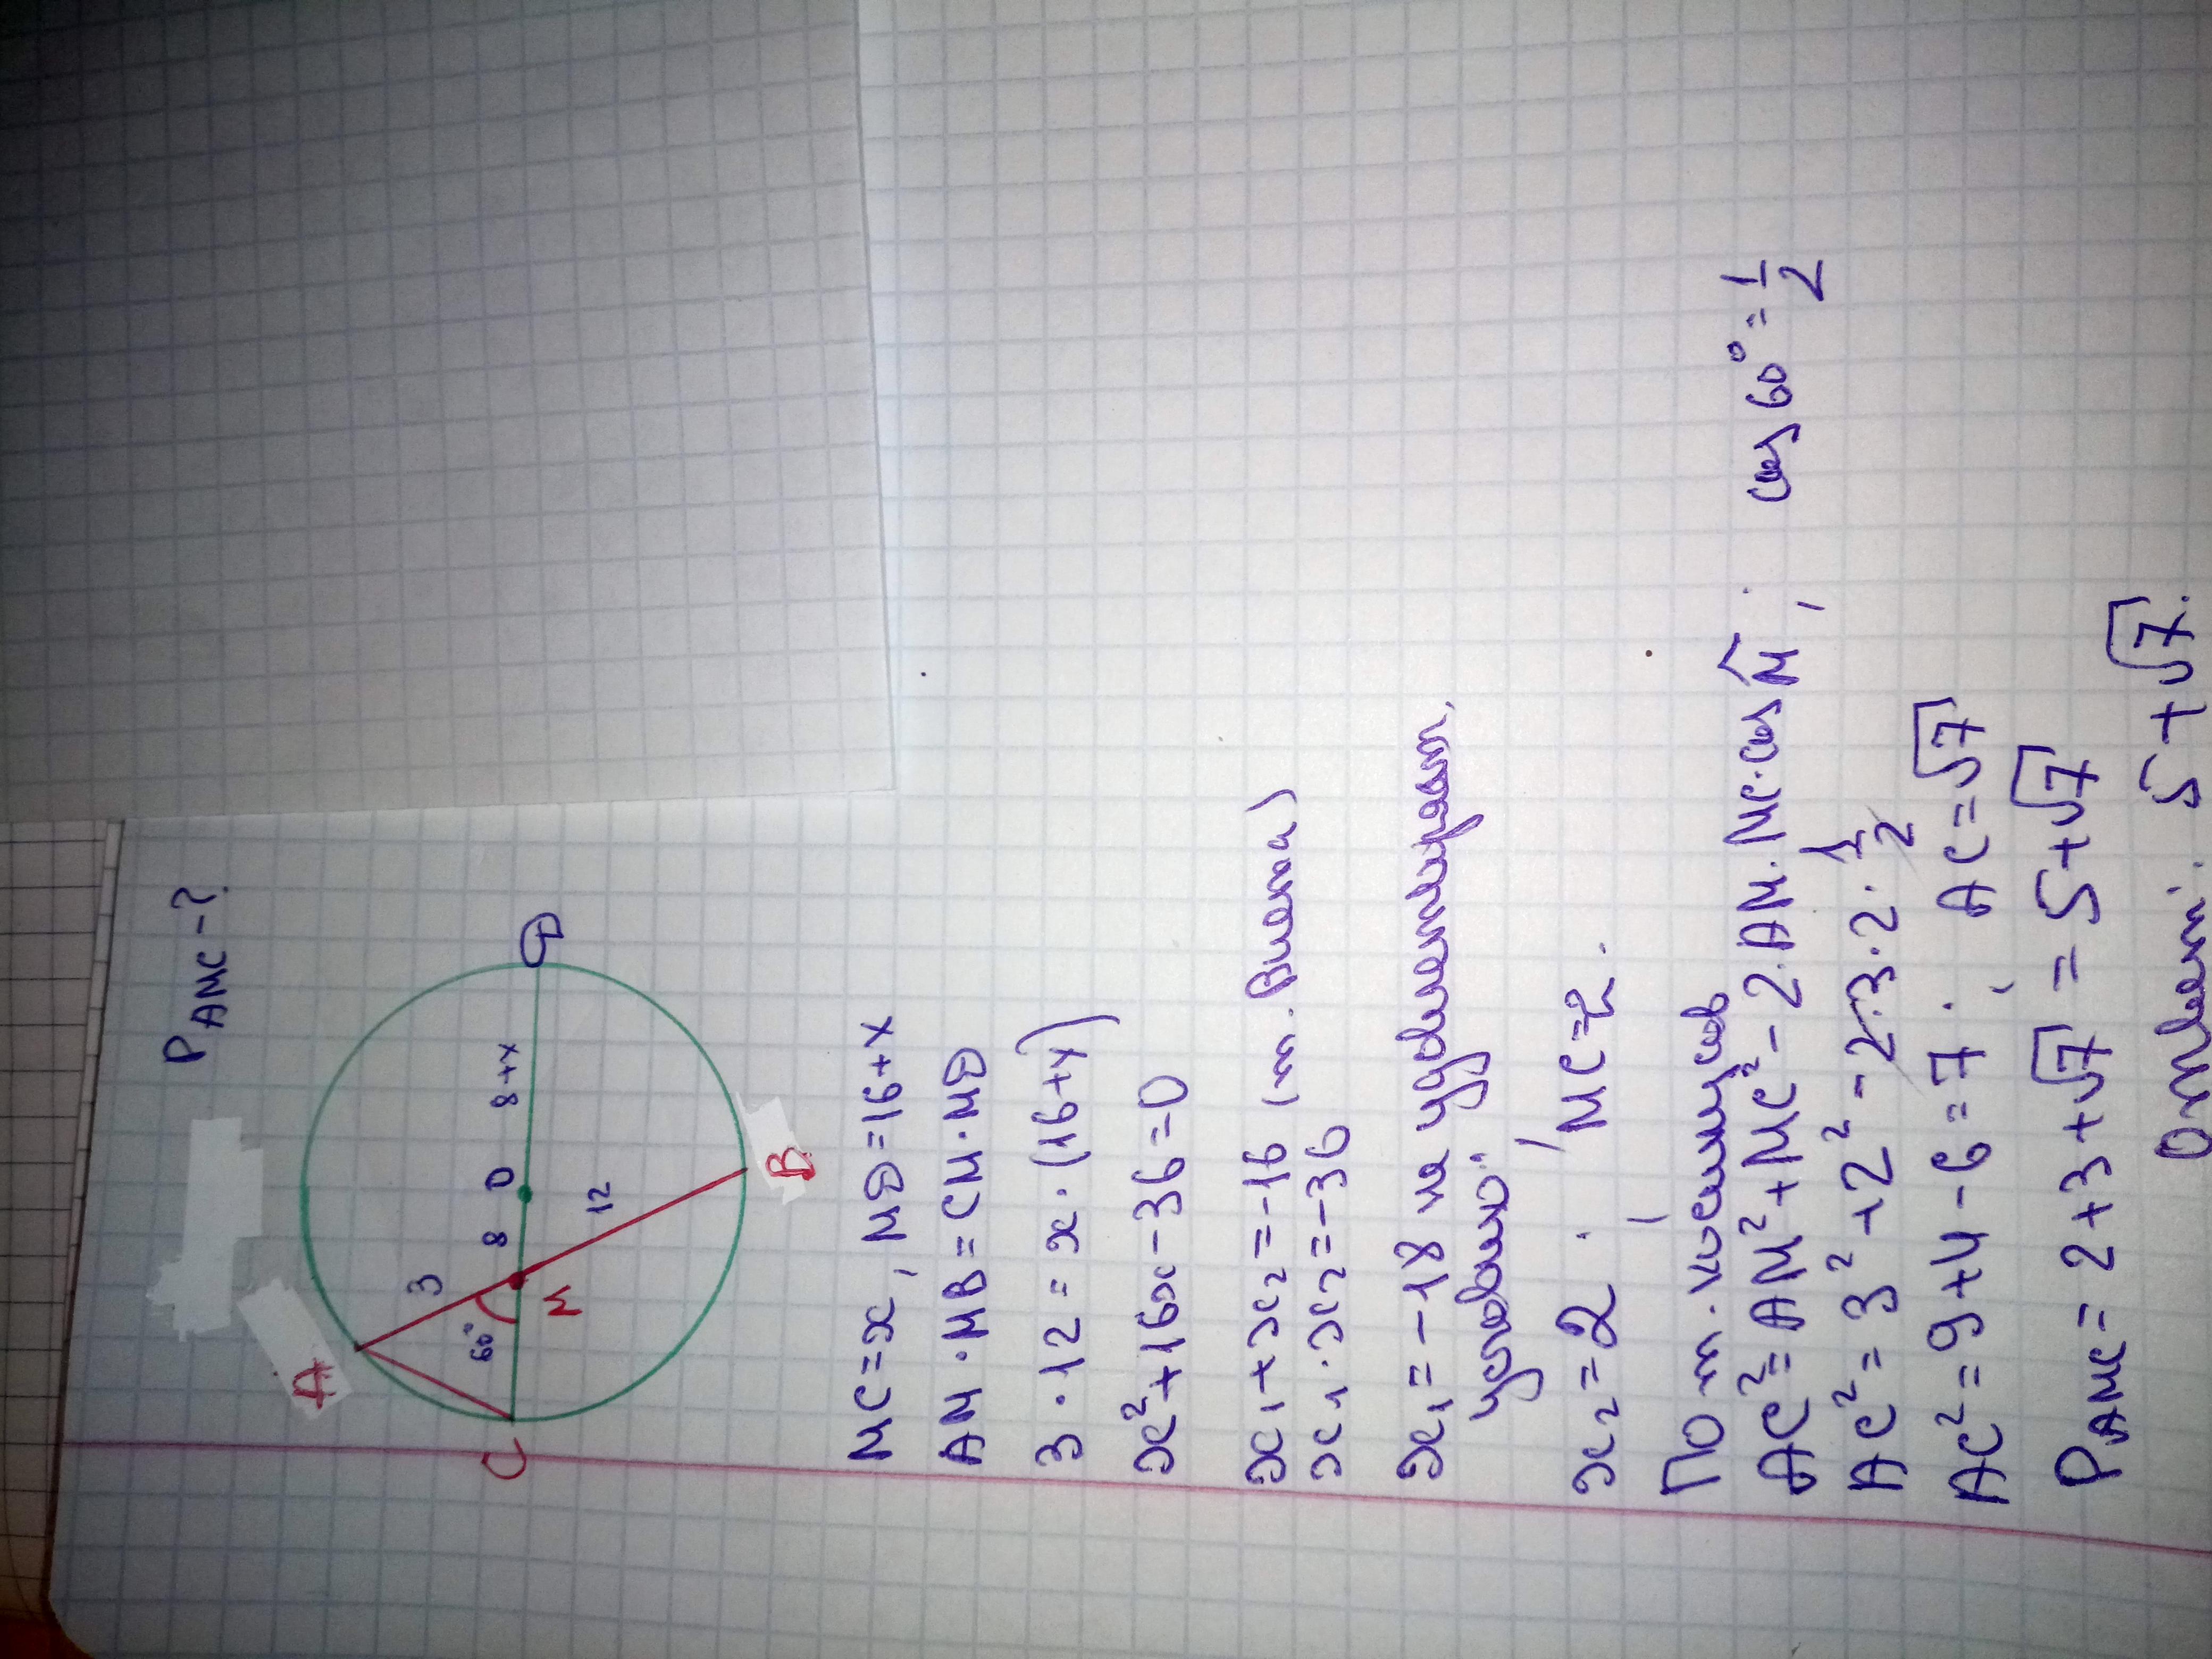 P AMC - ?
A
3
60°
C
M
8
O
8+x
D
12
B
MC = x, MD = 16+x
AM · MB = CM · MD
3 · 12 = x · (16+x)
x² + 16x - 36 = 0
x₁ + x₂ = -16 (т. Виета)
x₁ · x₂ = -36
x₁ = -18 не удовлетворяет
условию.
x₂ = 2. MC = 2.
По т. косинусов
AC² = AM² + MC² - 2·AM·MC·cos M̂; cos 60° = 1/2
AC² = 3² + 2² - 2·3·2·1/2
AC² = 9+4-6 = 7; AC = √7
P AMC = 2+3+√7 = 5+√7
Ответ: 5+√7.